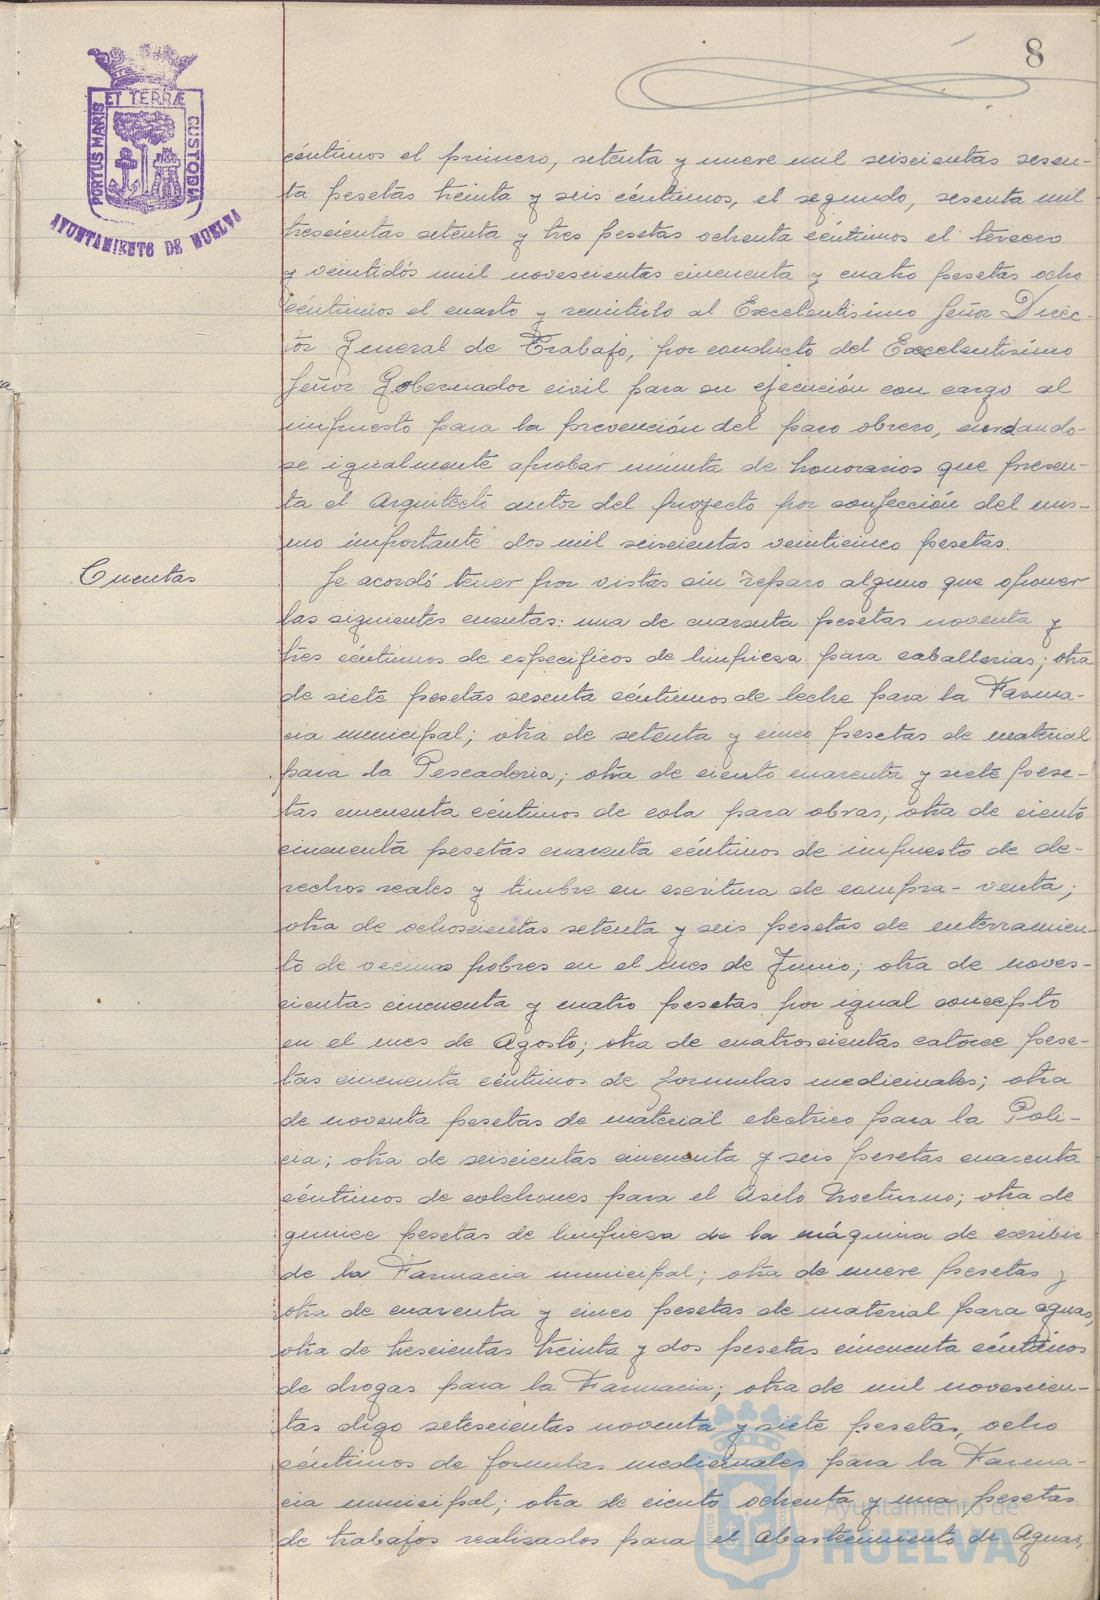 8
PORTUS MARIS ET TERRÆ CUSTODIA
AYUNTAMIENTO DE HUELVA
céntimos el primero, setenta y nueve mil seiscientas sesen-
ta pesetas treinta y seis céntimos, el segundo, sesenta mil
trescientas setenta y tres pesetas ochenta céntimos el tercero
y veintidós mil novescientas cincuenta y cuatro pesetas ocho
céntimos el cuarto y remitirlo al Excelentisimo Señor Direc-
tor General de Trabajo, por conducto del Excelentisimo
Señor Gobernador civil para su ejecución con cargo al
impuesto para la prevención del paro obrero, acordando-
se igualmente aprobar minuta de honorarios que presen-
ta el Arquitecto autor del proyecto por confección del mis-
mo importante dos mil seiscientas veinticinco pesetas.
Cuentas
Se acordó tener por vistas sin reparo alguno que oponer
las siguientes cuentas: una de cuarenta pesetas noventa y
tres céntimos de especificos de limpieza para caballerias; otra
de siete pesetas sesenta céntimos de leche para la Farma-
cia municipal; otra de setenta y cinco pesetas de material
para la Pescaderia; otra de ciento cuarenta y siete pese-
tas cincuenta céntimos de cola para obras, otra de ciento
cincuenta pesetas cuarenta céntimos de impuesto de de-
rechos reales y timbre en escritura de compra-venta;
otra de ochoscientas setenta y seis pesetas de enterramien-
to de vecinos pobres en el mes de Junio; otra de noves-
cientas cincuenta y cuatro pesetas por igual concepto
en el mes de Agosto; otra de cuatroscientas catorce pese-
tas cincuenta céntimos de formulas medicinales; otra
de noventa pesetas de material electrico para la Poli-
cia; otra de seiscientas cincuenta y seis pesetas cuarenta
céntimos de colchones para el Asilo Nocturno; otra de
quince pesetas de limpiesa de la máquina de escribir
de la Farmacia municipal; otra de nueve pesetas y
otra de cuarenta y cinco pesetas de material para aguas,
otra de trescientas treinta y dos pesetas cincuenta céntimos
de drogas para la Farmacia; otra de mil novescien-
tas digo setescientas noventa y siete pesetas, ocho
céntimos de formulas medicinales para la Farma-
cia municipal; otra de ciento ochenta y una pesetas
de trabajos realizados para el Abastecimiento de Aguas,
Ayuntamiento de
HUELVA